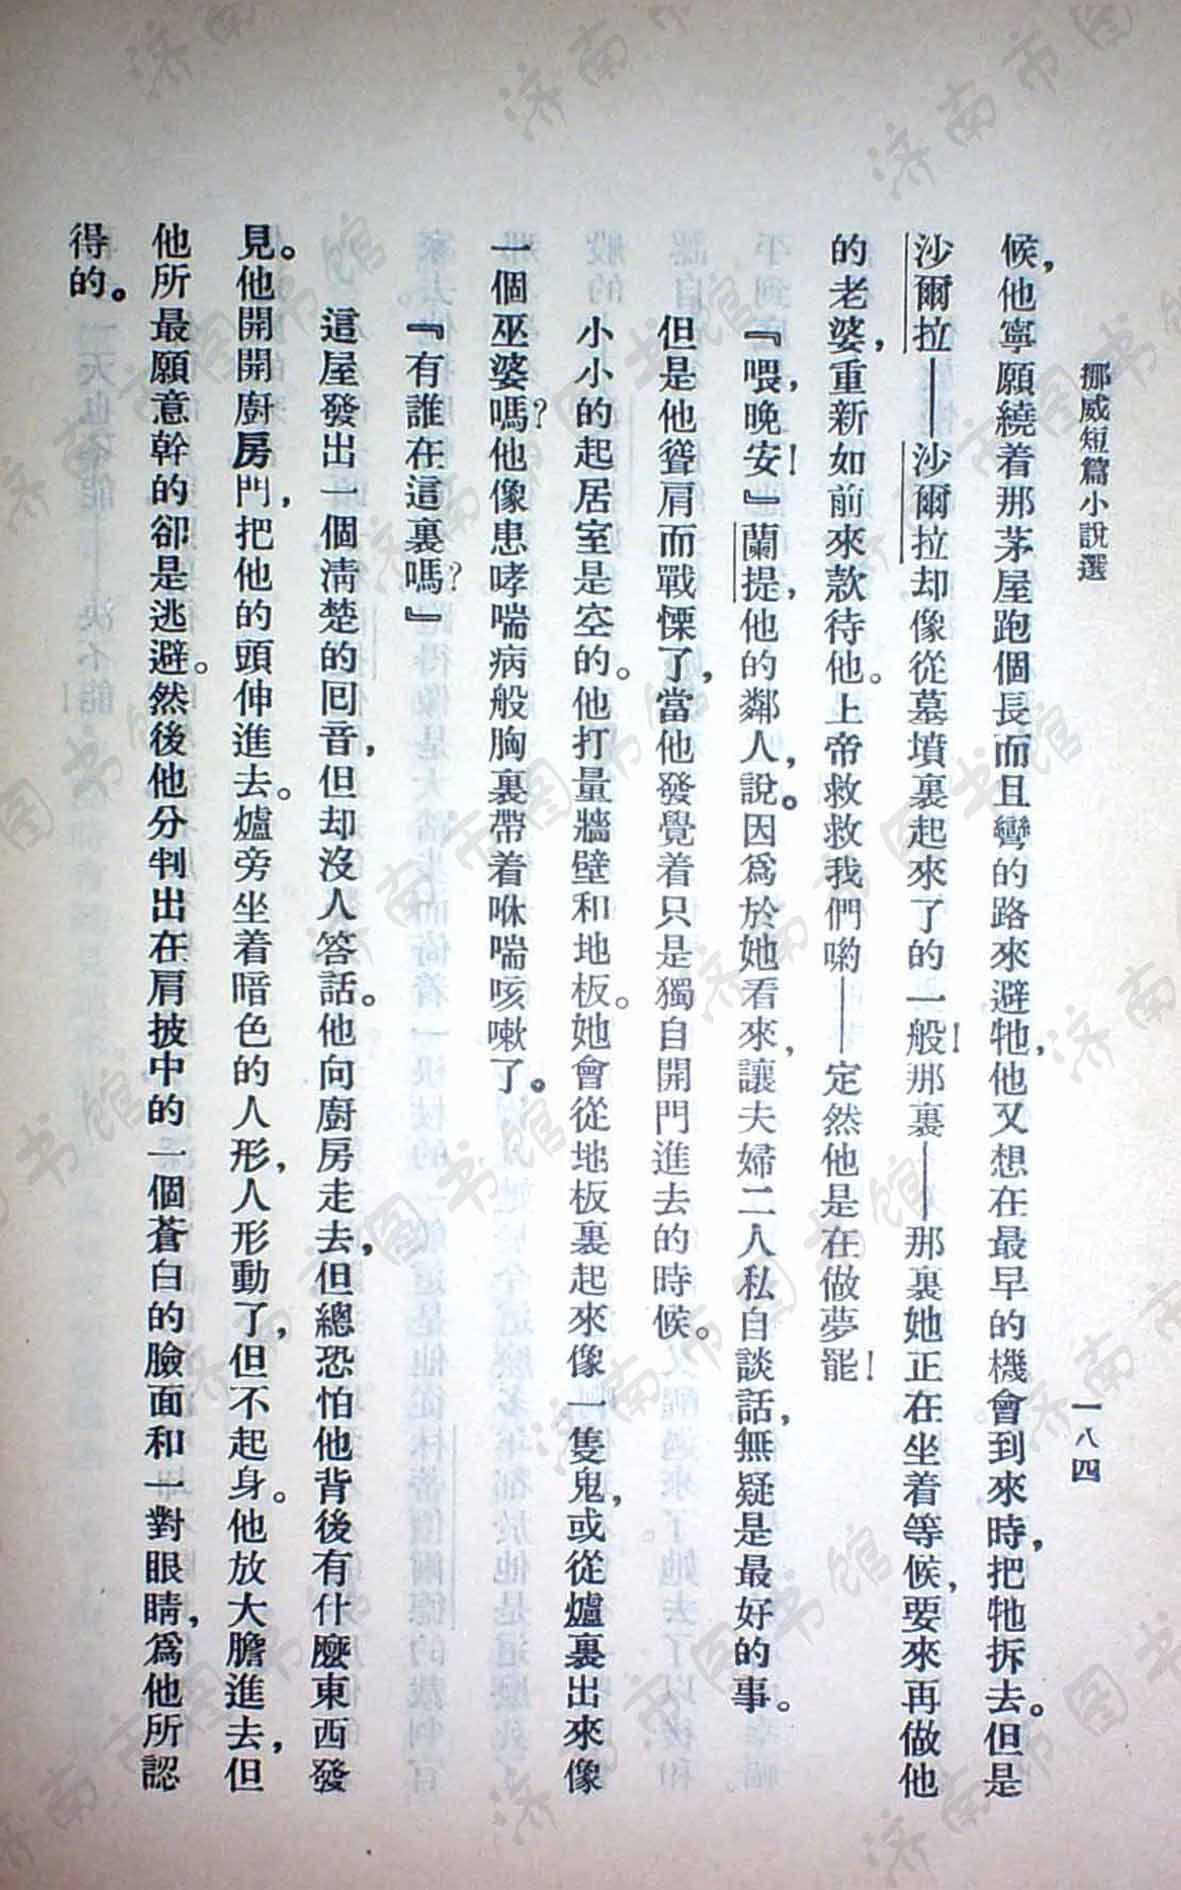 挪威短篇小說選
一八四
候，他寧願繞着那茅屋跑個長而且彎的路來避牠，他又想在最早的機會到來時，把牠拆去。但是
沙爾拉——沙爾拉却像從墓墳裏起來了的一般！那裏——那裏她正在坐着等候，要來再做他
的老婆，重新如前來款待他。上帝救救我們喲——定然他是在做夢罷！
『喂，晚安！』蘭提，他的鄰人，說。因爲於她看來，讓夫婦二人私自談話，無疑是最好的事。
但是他聳肩而戰慄了，當他發覺着只是獨自開門進去的時候。
小小的起居室是空的。他打量牆壁和地板。她會從地板裏起來像一隻鬼，或從爐裏出來像
一個巫婆嗎？他像患哮喘病般胸裏帶着咻喘咳嗽了。
『有誰在這裏嗎？』
這屋發出一個淸楚的囘音，但却沒人答話。他向廚房走去，但總恐怕他背後有什麼東西發
見。他開開廚房門，把他的頭伸進去。爐旁坐着暗色的人形，人形動了，但不起身。他放大膽進去，但
他所最願意幹的卻是逃避。然後他分判出在肩披中的一個蒼白的臉面和一對眼睛，爲他所認
得的。